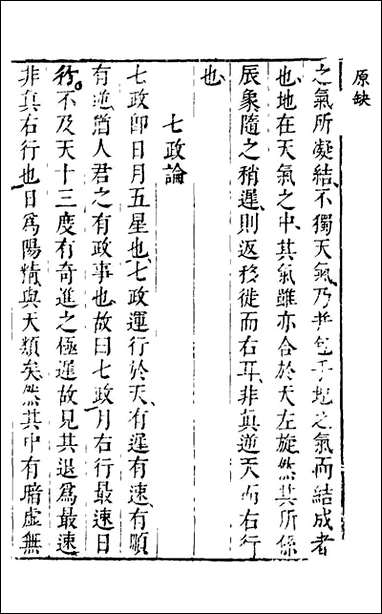 原缺
之氣所凝結不獨天氣乃并包乎地之氣而結成者
也地在天氣之中其氣雖亦合於天左旋然其所係
辰象隨之稍遲則返移徙而右耳非眞逆天而右行
也
七政論
七政卽日月五星也七政運行於天有遲有速有順
有逆猶人君之有政事也故曰七政月右行最速日
行不及天十三度有奇進之極遲故見其退爲最速
非眞右行也日爲陽精與天類矣然其中有暗虛無